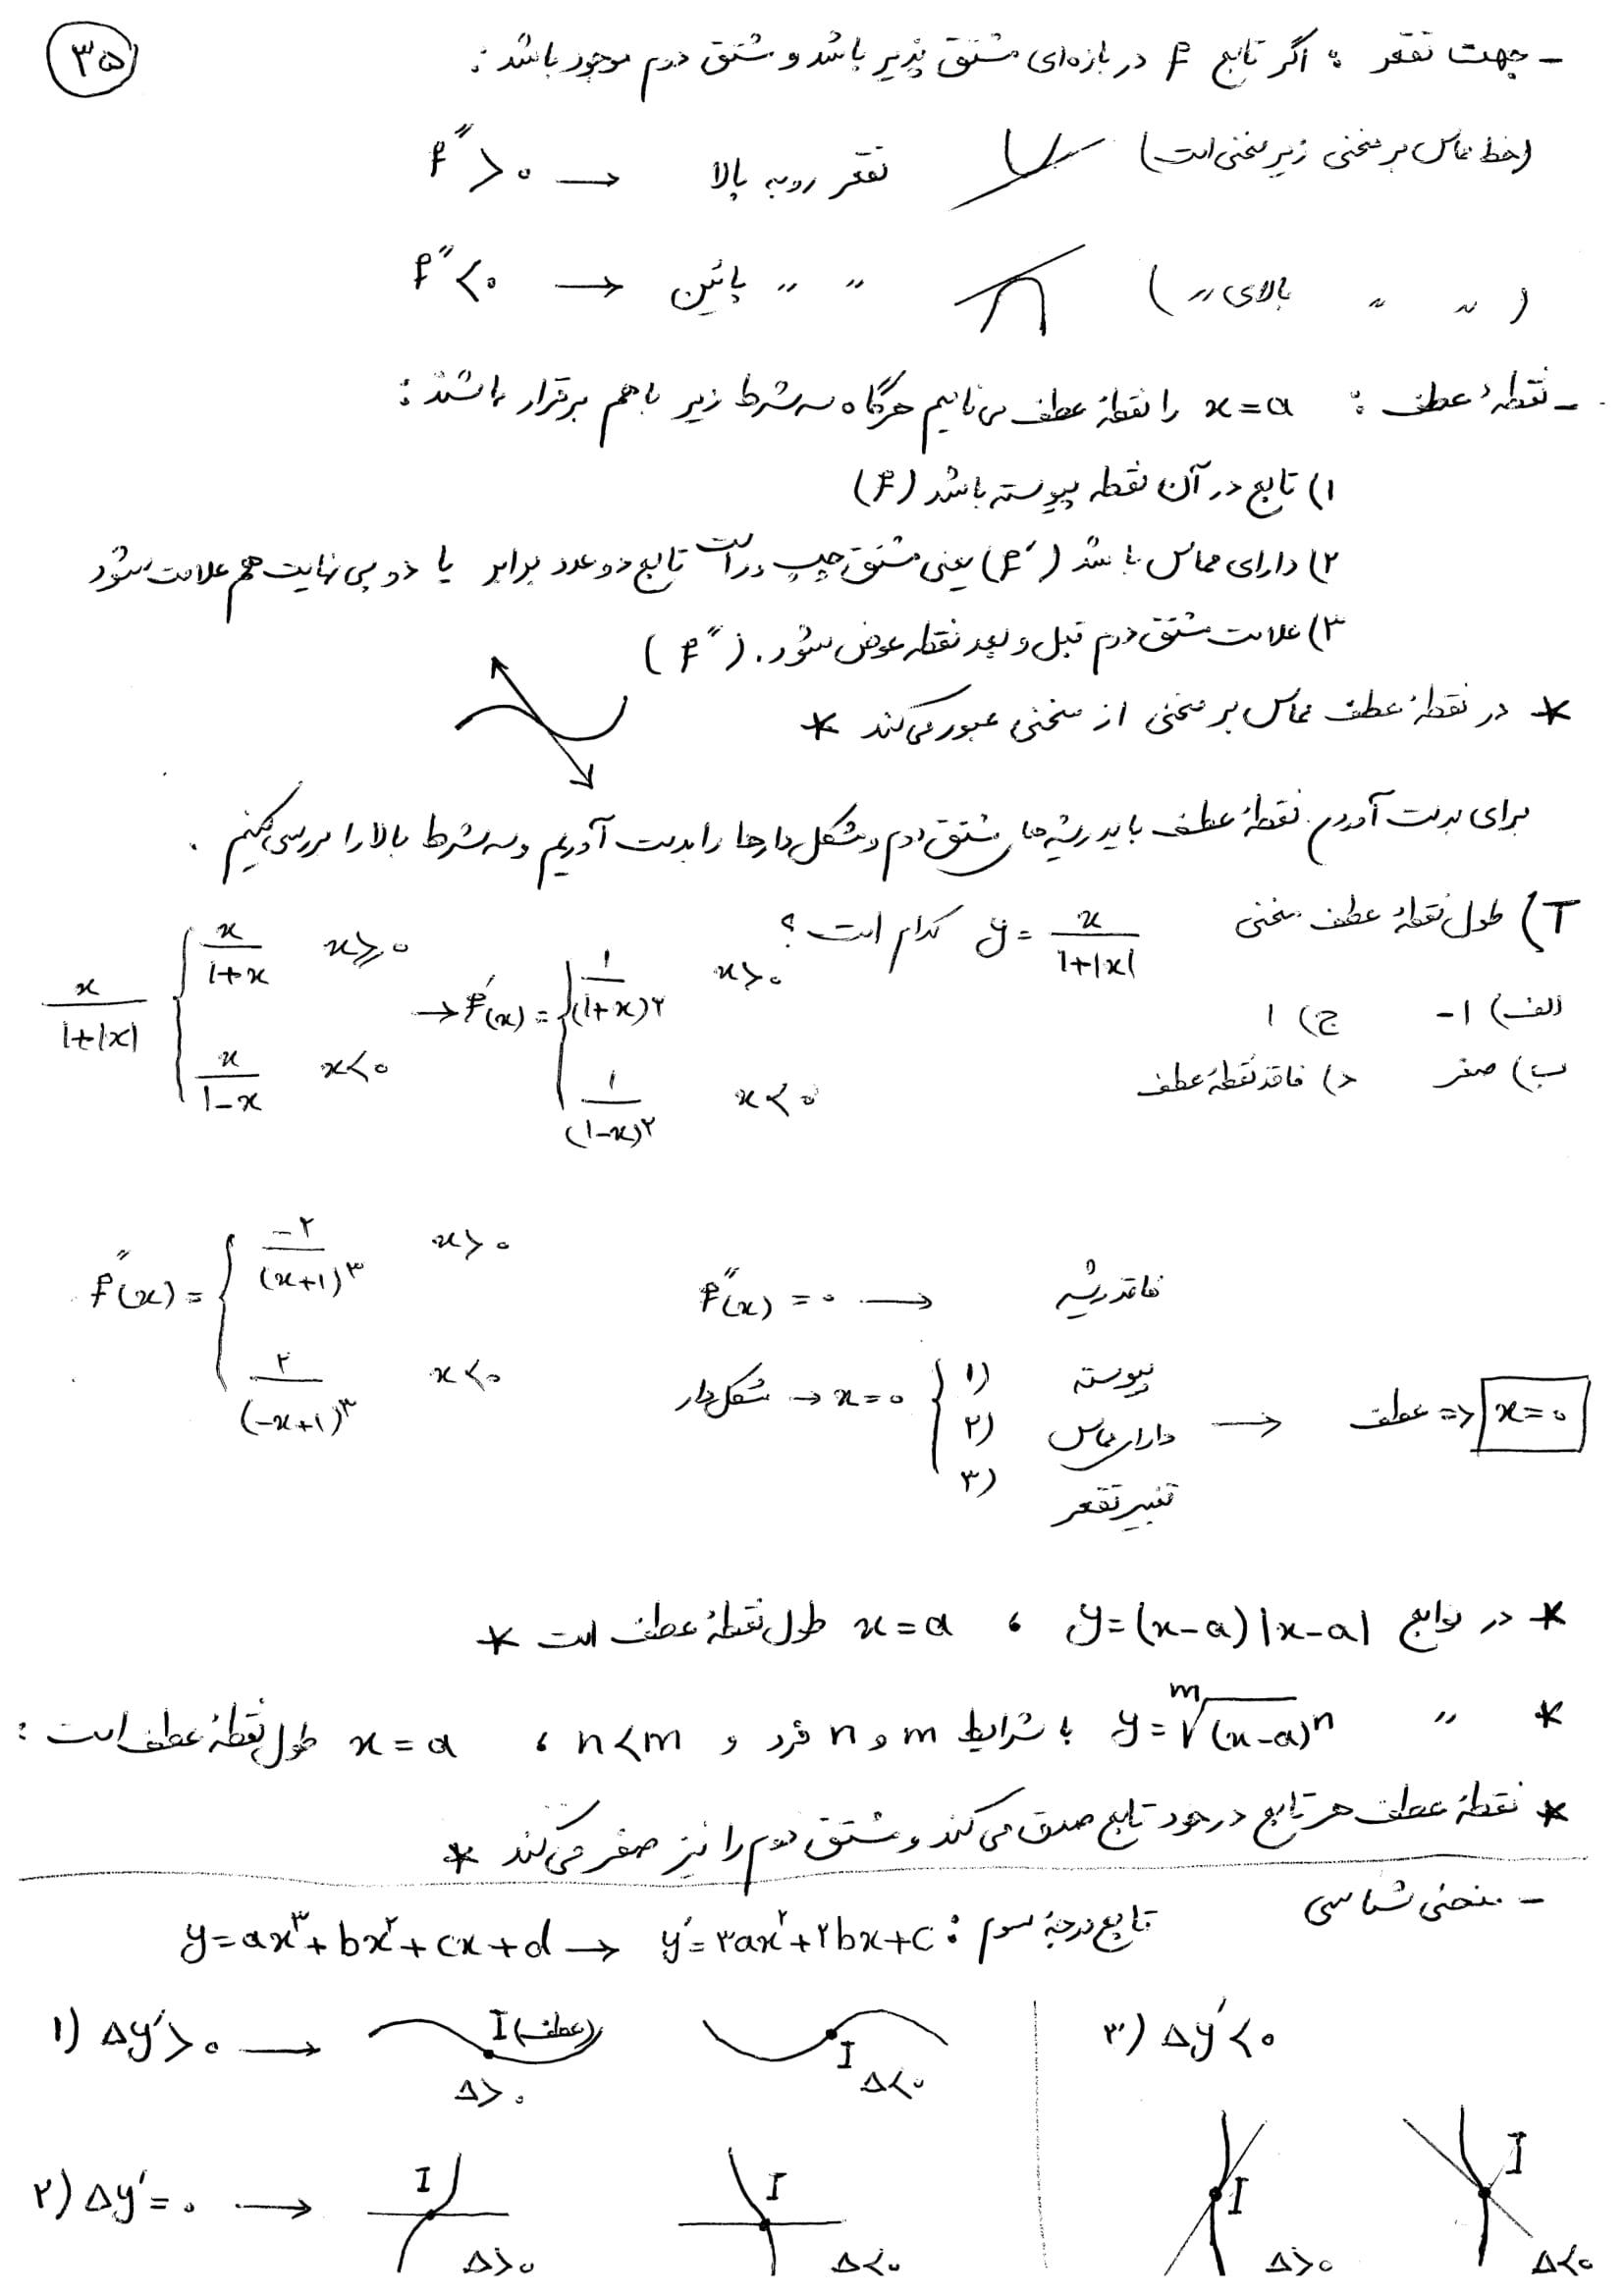 ۳۵
- جهت تقعر : اگر تابع f در بازه‌ای مشتق پذیر باشد و مشتق دوم موجود باشد :
(خط مماس بر منحنی زیر منحنی است) تقعر رو به بالا → f″ > ۰
( 〃 〃 بالای 〃 ) 〃 〃 پائین → f″ < ۰
- نقطهٔ عطف : x = a را نقطهٔ عطف می نامیم هرگاه سه شرط زیر با هم برقرار باشند :
۱) تابع در آن نقطه پیوسته باشد (f)
۲) دارای مماس باشد (f′) یعنی مشتق چپ و راست تابع دو عدد برابر یا دو بی نهایت هم علامت شود
۳) علامت مشتق دوم قبل و بعد نقطه عوض شود. (f″)
* در نقطهٔ عطف مماس بر منحنی از منحنی عبور می کند *
برای بدست آوردن نقطهٔ عطف باید ریشه ها مشتق دوم و مشکل دارها را بدست آوریم و سه شرط بالا را بررسی کنیم .
T) طول نقطهٔ عطف منحنی y = x/(1+|x|) کدام است ؟
الف) -۱ ج) ۱
ب) صفر د) فاقد نقطهٔ عطف
x/(1+|x|) { x/(1+x) x ≥ ۰
x/(1-x) x < ۰
→ f′(x) = { ۱/(1+x)^۲ x > ۰
۱/(1-x)^۲ x < ۰
f″(x) = { -۲/(x+1)^۳ x > ۰
۲/(-x+1)^۳ x < ۰
f″(x) = ۰ → فاقد ریشه
مشکل دار → x = ۰ { ۱) پیوسته
۲) دارای مماس
۳) تغییر تقعر
→ عطف => x = ۰
* در توابع y = (x-a)|x-a| ، x = a طول نقطهٔ عطف است *
* 〃 y = m√(x-a)^n با شرایط m و n فرد و n < m ، x = a طول نقطهٔ عطف است :
* نقطهٔ عطف هر تابع در خود تابع صدق می کند و مشتق دوم را نیز صفر می کند *
- منحنی شناسی
تابع درجهٔ سوم : y = ax^۳ + bx^۲ + cx + d → y′ = ۳ax^۲ + ۲bx + c
۱) Δy′ > ۰ → I (عطف) Δ > ۰ I Δ < ۰
۲) Δy′ = ۰ → I Δ > ۰ I Δ < ۰
۳) Δy′ < ۰
I Δ > ۰ I Δ < ۰